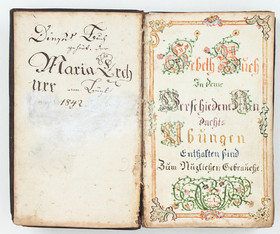 Dieses Buch
gehört der
Maria
1842.
Gebeth Buch
In deme
Verschiedene An
dachts
Übungen
Enthalten sind
Zum Nuzlichen Gebrauche.